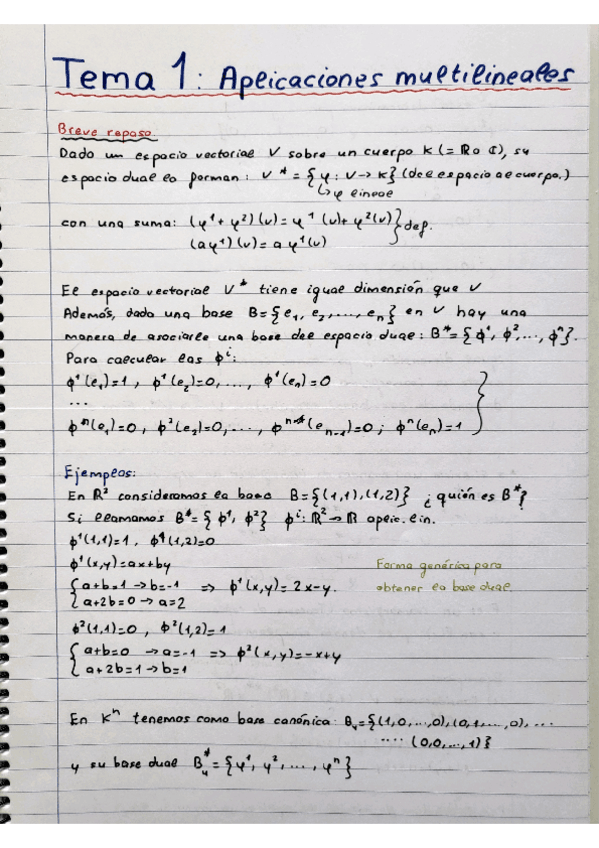 Tema 1: Aplicaciones multilineales
Breve repaso.
Dado un espacio vectorial V sobre un cuerpo K (= ℝ o ℂ), su
espacio dual lo forman: V* = {φ: V → K} (del espacio al cuerpo.)
↳ φ lineal
con una suma: (φ¹ + φ²)(v) = φ¹(v) + φ²(v) } def.
(aφ¹)(v) = aφ¹(v)
El espacio vectorial V* tiene igual dimensión que V
Además, dada una base B={e₁, e₂, ..., eₙ} en V hay una
manera de asociarle una base del espacio dual: B*={ϕ¹, ϕ², ..., ϕⁿ}.
Para calcular las ϕⁱ:
ϕ¹(e₁)=1, ϕ¹(e₂)=0, ..., ϕ¹(eₙ)=0
...
ϕⁿ(e₁)=0, ϕ²(e₂)=0, ..., ϕⁿ⁻¹(eₙ₋₁)=0; ϕⁿ(eₙ)=1
Ejemplos:
En ℝ² consideramos la base B={(1,1),(1,2)} ¿quién es B*?
Si llamamos B*={ϕ¹, ϕ²} ϕⁱ: ℝ² → ℝ aplic. lin.
ϕ¹(1,1)=1, ϕ¹(1,2)=0
ϕ¹(x,y)=ax+by
{ a+b=1 → b=-1 ⇒ ϕ¹(x,y)=2x-y.
a+2b=0 → a=2
Forma genérica para
obtener la base dual.
ϕ²(1,1)=0, ϕ²(1,2)=1
{ a+b=0 → a=-1 ⇒ ϕ²(x,y)=-x+y
a+2b=1 → b=1
En Kⁿ tenemos como base canónica: B₄={(1,0,...,0),(0,1,...,0), ...
.... (0,0,...,1)}
y su base dual B₄*={φ¹, φ², ..., φⁿ}